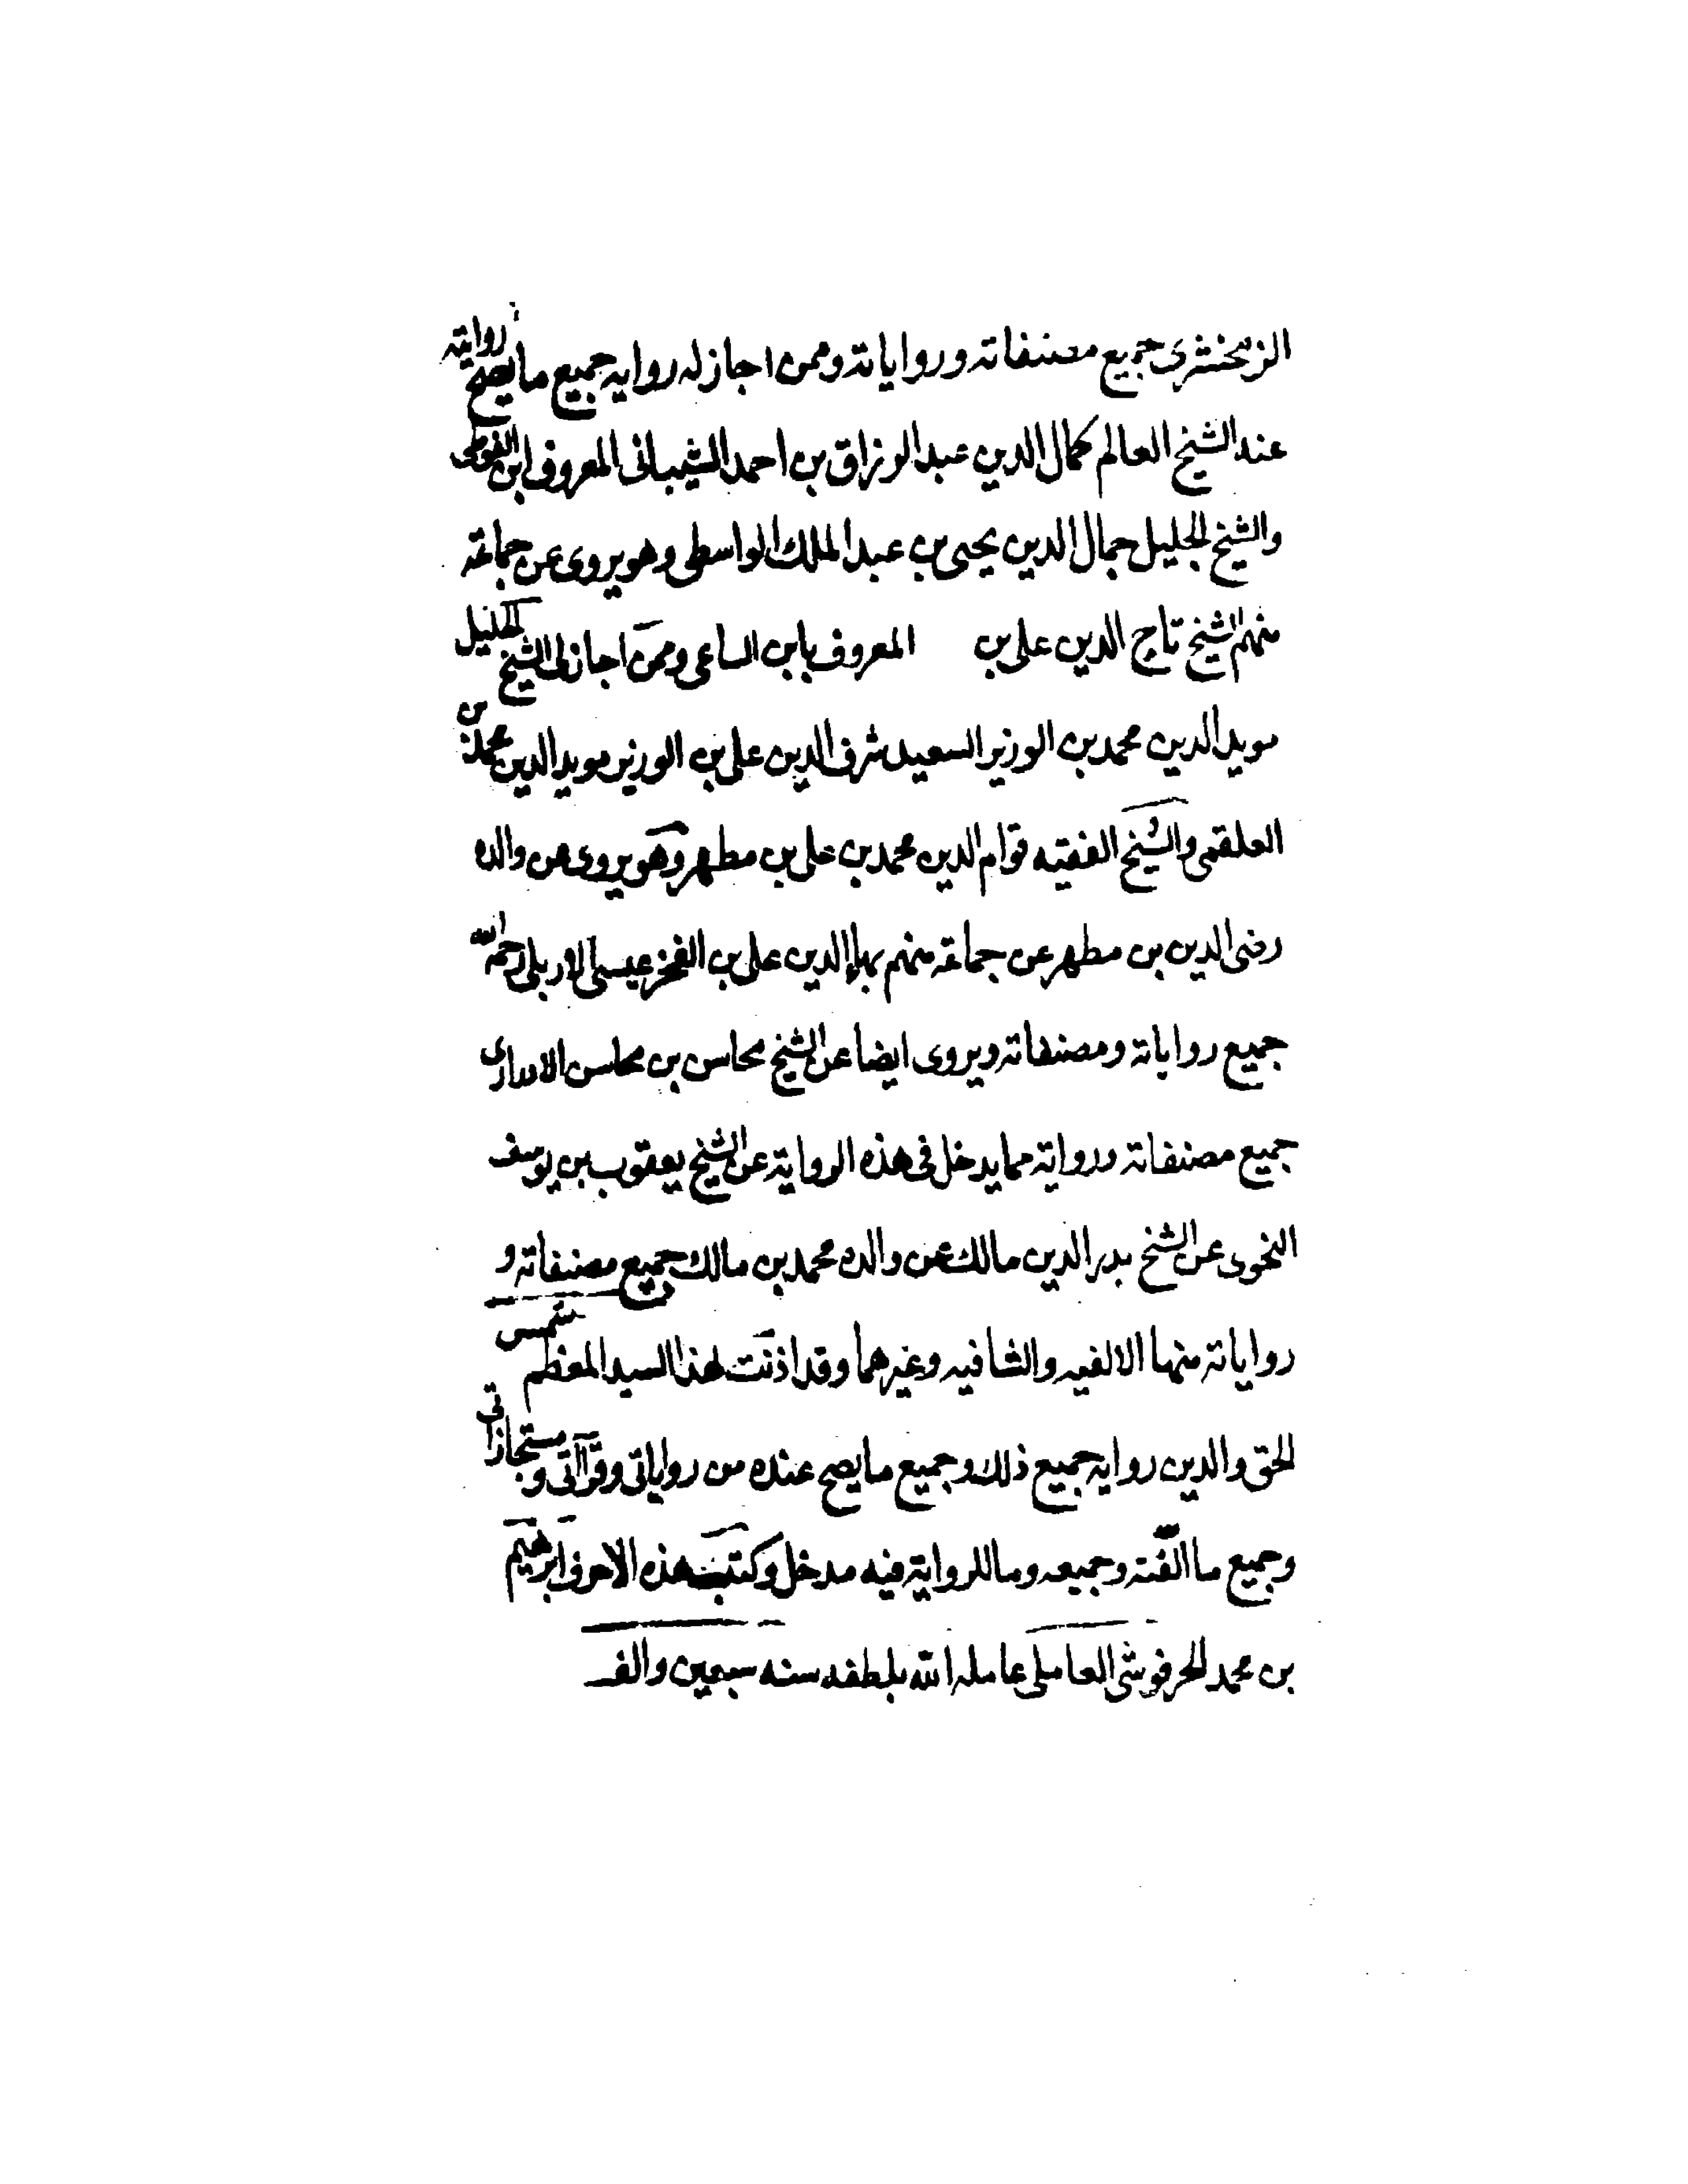 الزمخشرى جميع مصنفاته ورواياته وممن اجاز له روايه جميع ما يصح روايته
عند الشيخ العالم كمال الدين عبد الرزاق بن احمد الشيبانى المعروف ابن الفوطى
والشيخ الجليل جمال الدين يحيى بن عبد الملك الواسطى وهو يروى عن جماعة
منهم الشيخ تاج الدين على بن المعروف بابن الساعى وممن اجاز لى الشيخ الجليل
مويد الدين محمد بن الوزير السعيد شرف الدين على بن الوزير مويد الدين محمد بن
العلقمى والشيخ الفقيه قوام الدين محمد بن على بن مطهر وهو يروى عن والده
رضى الدين بن مطهر عن جماعة منهم بهاء الدين على بن الفخر عيسى الاربلى رحمه الله
جميع رواياته ومصنفاته ويروى ايضا عن الشيخ محاسن بن محاسن
جميع مصنفاته وروايته مما يدخل فى هذه الرواية عن الشيخ يعقوب بن يوسف
النحوى عن الشيخ بدر الدين مالك عن والده محمد بن مالك جميع مصنفاته و
رواياته منها الالفيه والشافيه وغيرهما وقد اذنت لهذا السيد المعظم شمس
الحق والدين روايه جميع ذلك وجميع ما يصح عنده من رواياتى وقرآآتى ومستجازاتى
وجميع ما الفته وجميعه وما للرواية فيه مدخل وكتب هذه الاحرف ابرهيم
بن محمد الحرفوشى العاملى عامله الله بلطفه سنه سبعين والف